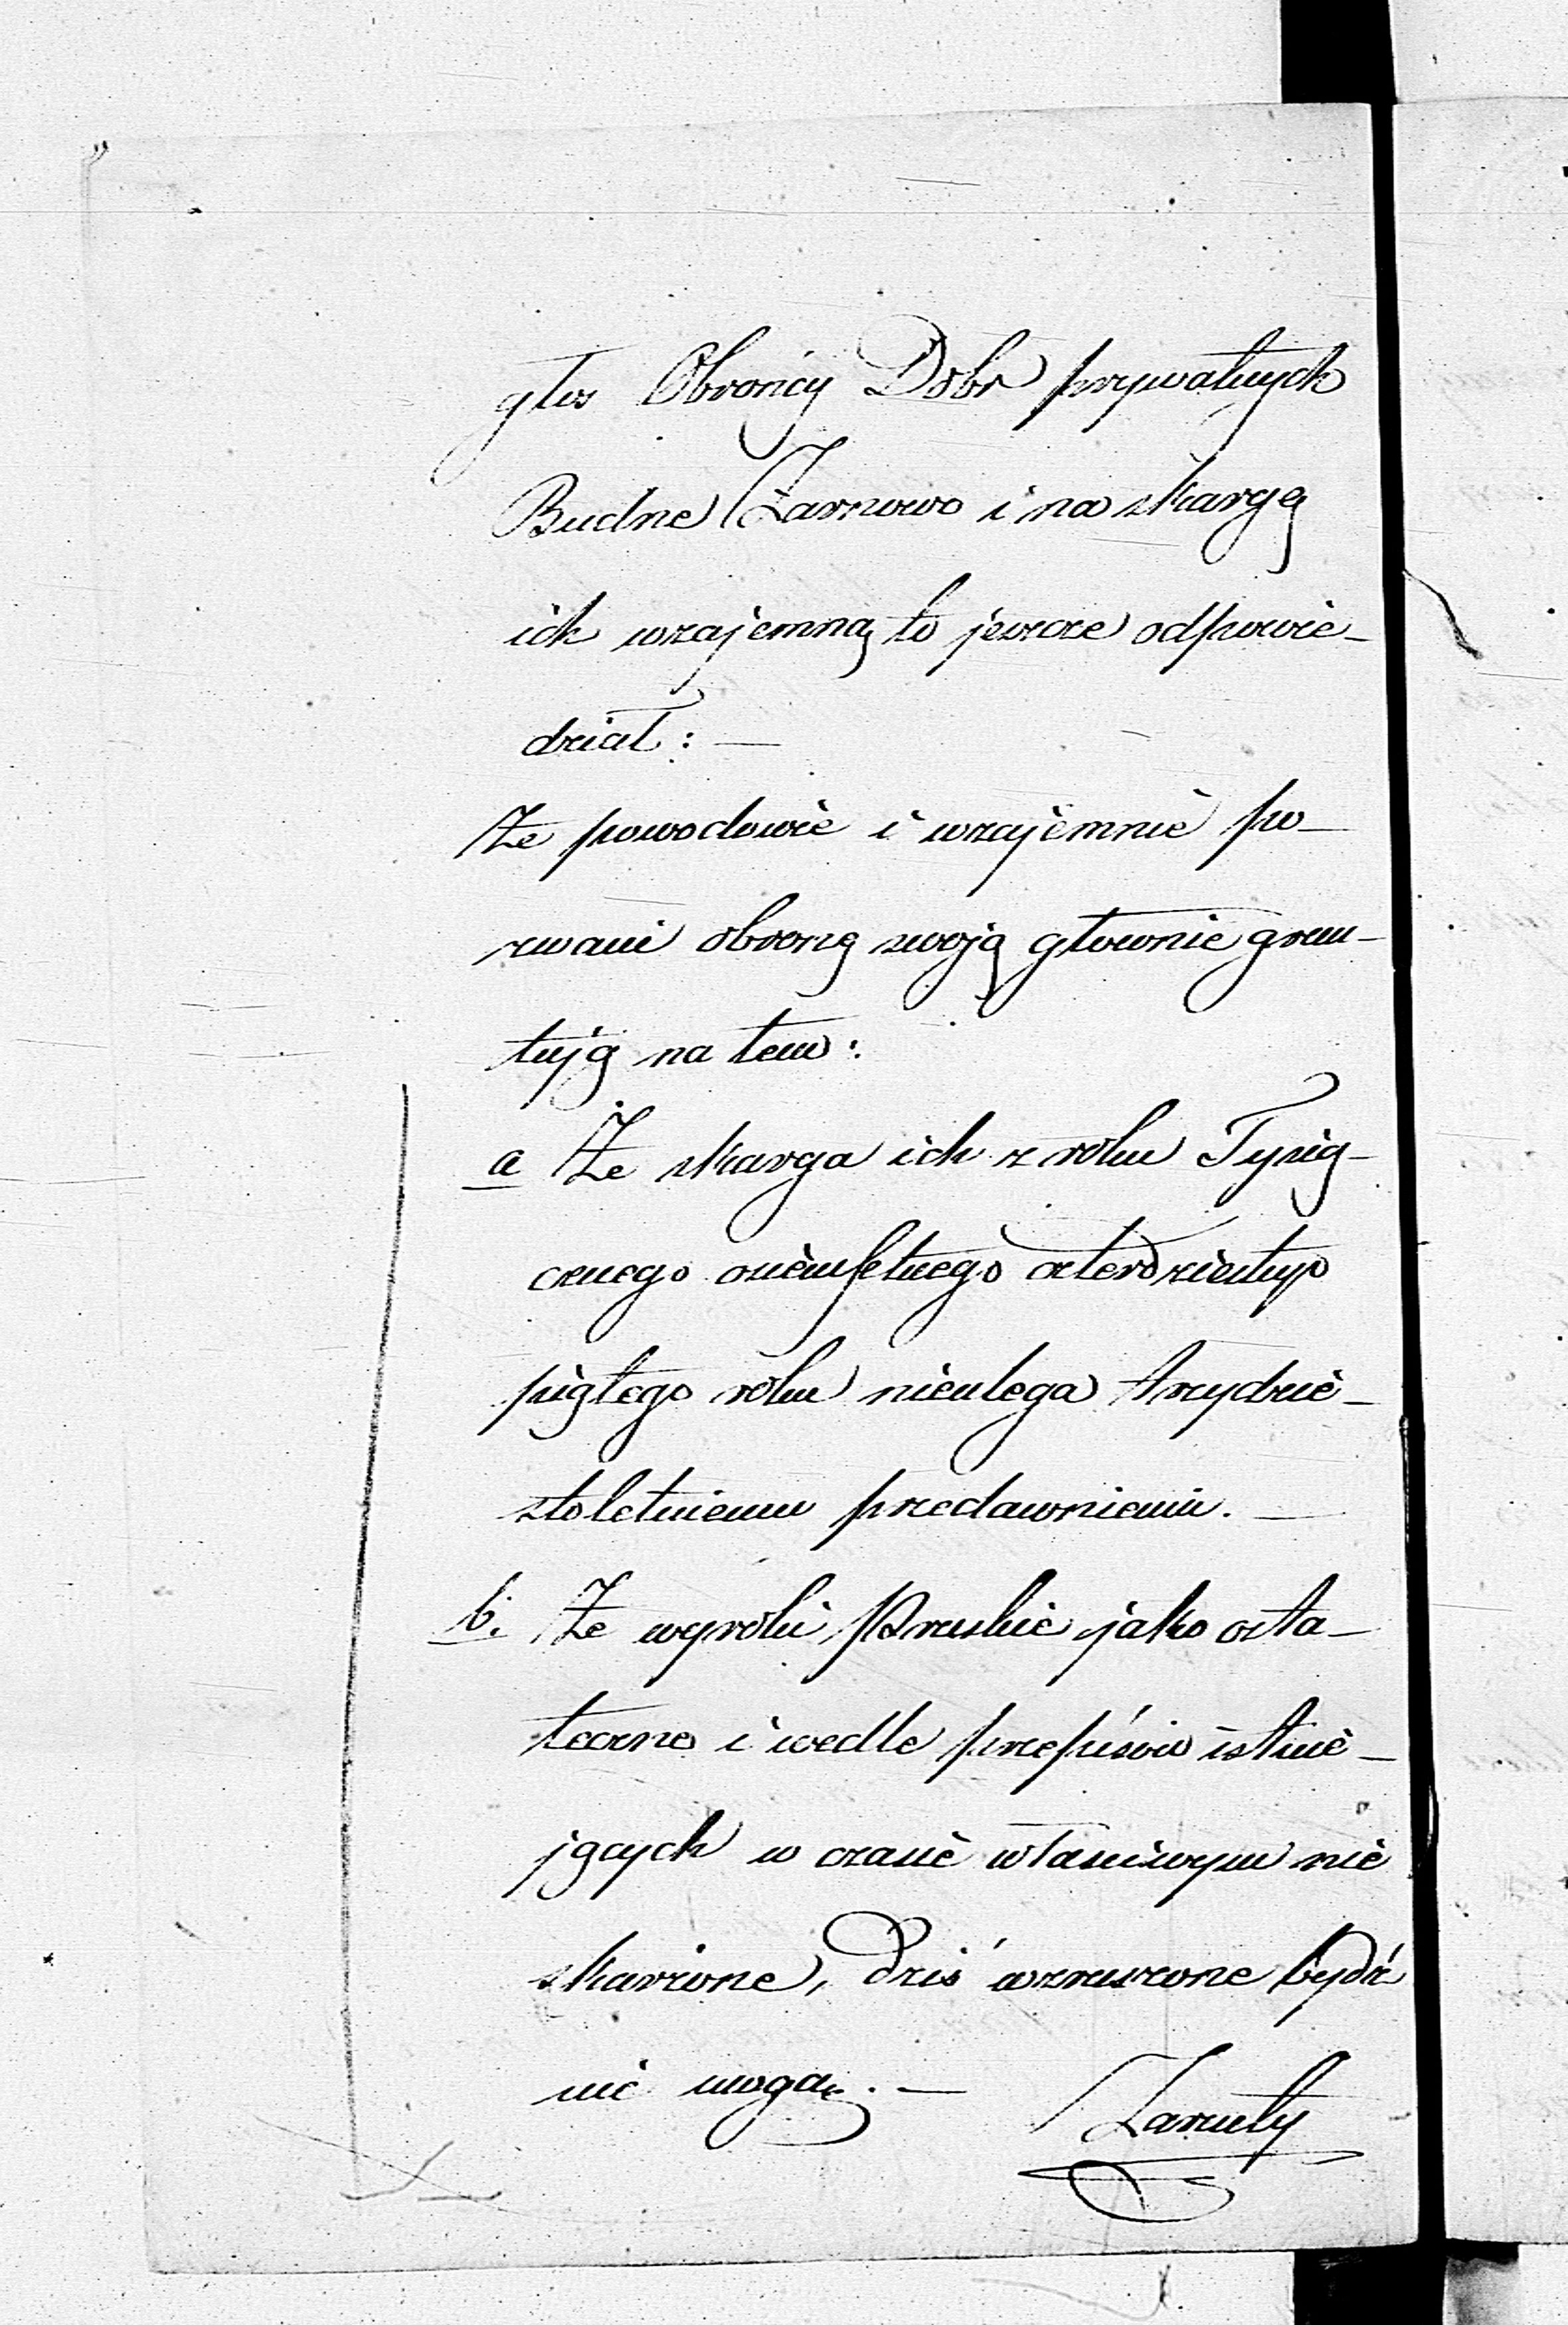 głos Obrońcy Dobr prywatnych
Budne Żarnowo i na skargę
ich wzajemną to jeszcze odpowie-
dział: —
Że powodowie i wzajemnie po-
zwani obronę swoją głownie grun-
tują na tem:
a Że skarga ich z roku Tysią-
cznego ośiemsetnego czterdziestego
piątego roku nieulega trzydzie-
stoletniemu przedawnieniu. —
b. Że wyroki Pruskie jako osta-
teczne i wedle przepisów istnie-
jących w czasie właściwym nie
skarżone, dziś wzruszone bydź
nie mogą. —
Zarzuty